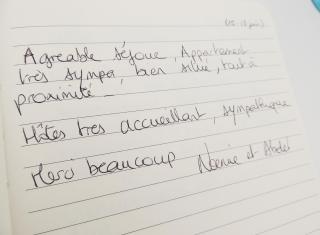 (15-18 juin)
Agreable séjour, Appartement
très sympa, bien situé, tout à
proximité -
Hôtes très accueillant, sympathique
Merci beaucoup Noemie et Abdel